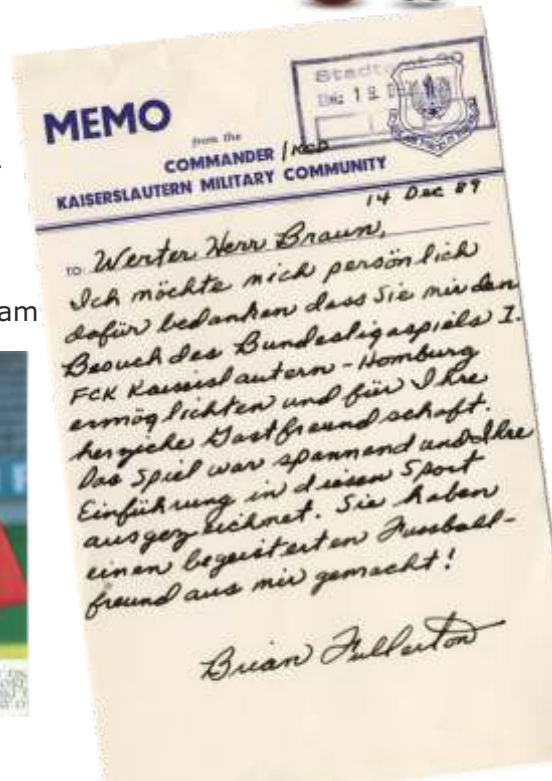 am
MEMO
from the
COMMANDER / KCD
KAISERSLAUTERN MILITARY COMMUNITY
14 Dec 89
TO: Werter Herr Braun,
Ich möchte mich persönlich
dafür bedanken dass Sie mir den
Besuch des Bundesligaspiels I.
FCK Kaiserslautern - Homburg
ermöglichten und für Ihre
herzliche Gastfreundschaft.
Das Spiel war spannend und Ihre
Einführung in diesen Sport
ausgezeichnet. Sie haben
einen begeisterten Fussball-
freund aus mir gemacht!
Brian Fullerton